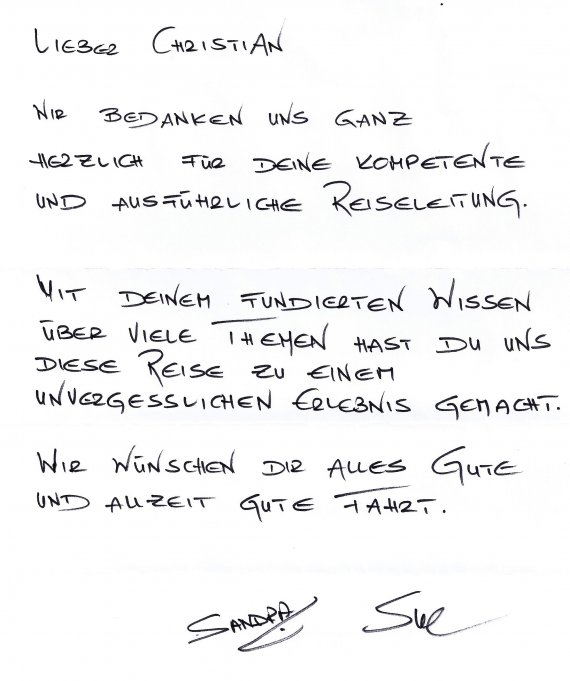 LIEBER CHRISTIAN
WIR BEDANKEN UNS GANZ
HERZLICH FÜR DEINE KOMPETENTE
UND AUSFÜHRLICHE REISELEITUNG.
MIT DEINEM FUNDIERTEN WISSEN
ÜBER VIELE THEMEN HAST DU UNS
DIESE REISE ZU EINEM
UNVERGESSLICHEN ERLEBNIS GEMACHT.
WIR WÜNSCHEN DIR ALLES GUTE
UND ALLZEIT GUTE FAHRT.
SANDRA Sue